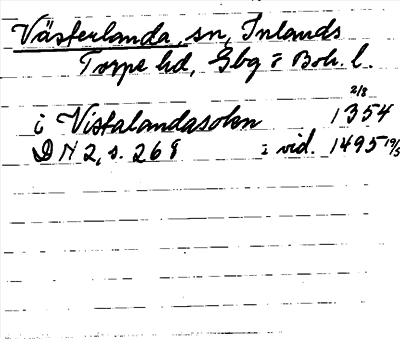 Västerlanda, sn, Inlands
Torpe hd, Gbg o Boh. l.
2/8
i Vistalandasokn 1354
DN 2, s. 268 i vid. 1495 19/5